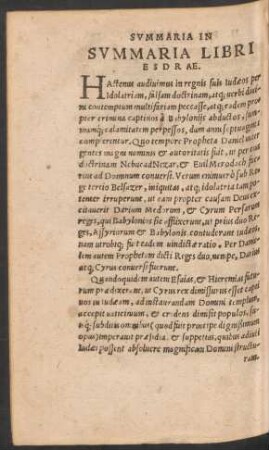 SVMMARIA IN
SVMMARIA LIBRI
ESDRAE.
HActenus audiuimus in regnis suis Iudæos per
Idolatriam, falsam doctrinam, atq; uerbi diui
ni contemptum multifariam peccasse, atq; eadem prop
ter crimina captiuos à Babylonijs abductos, sum
mamq; calamitatem perpessos, dum anni septuaginta
complerentur. Quo tempore Propheta Daniel
gentes magni nominis & autoritatis fuit, ut per eius
doctrinam Nebucad Nezar, & Euil Merodach fue
rint ad Dominum conuersi. Verum enimuerò sub Re
ge tertio Belsazer, iniquitas, atq; idolatria tam po
tenter irruperunt, ut eam propter causam Deus ex
citauerit Darium Medorum, & Cyrum Persarum
reges, qui Babylonios sic afflixerunt, ut prius duo Re
ges, Assyriorum & Babylonis contuderant Iudæos,
nam utrobiq; fuit eadem uindictæ ratio. Per Dani
lem autem Prophetam dicti Reges duo, nempe, Darius
atq; Cyrus conuersi fuerunt.
Quandoquidem autem Esaias, & Hieremias futu
rum prædixerant, ut Cyrus rex dimissurus esset capti
uos in Iudæam, ad instaurandam Domini templum,
accepit uaticinium, & credens dimisit populos, su
isq; subditis omnibus
opus, imperauit præsidia, & suppetias, quibus adiuti
Iudæi possent absoluere magnificam Domini structu
ram.